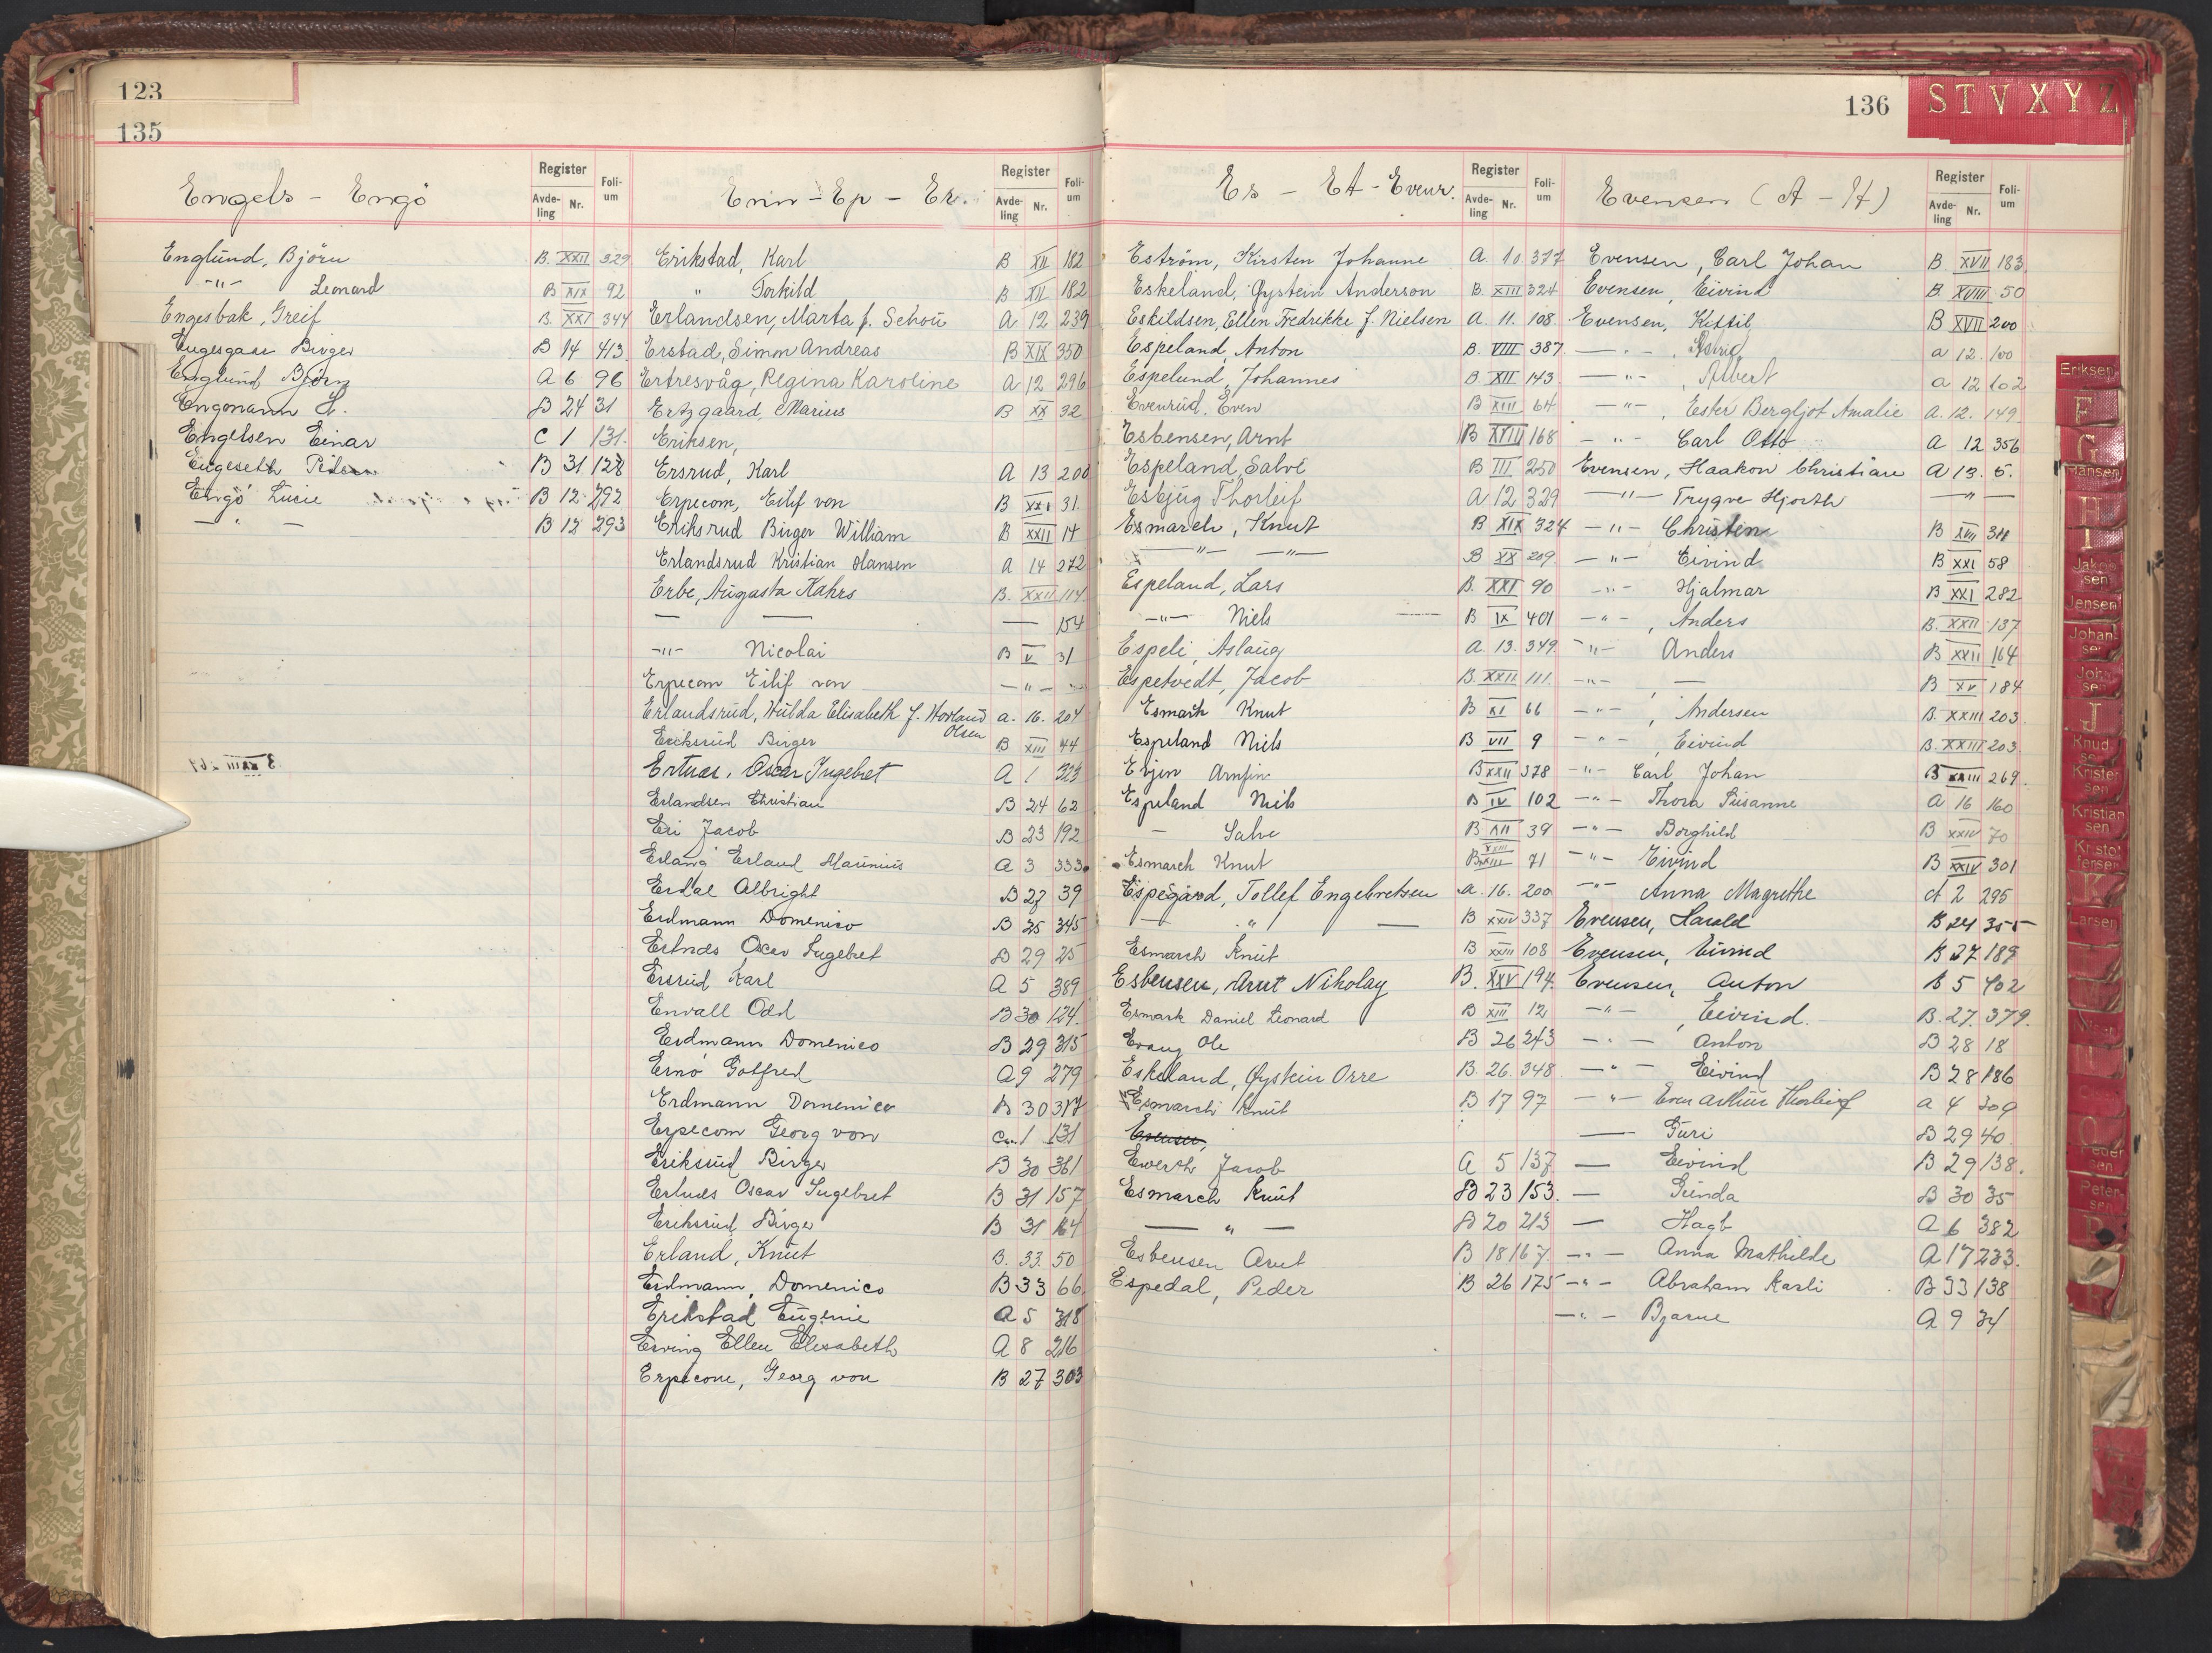 123
135
Engels - Engö
Register
Avde-ling Nr.
Foli-um
Englund, Björn B. XXII 329
-"- Leonard B XIX 92
Engesbak, Greif B. XXI 344
Engesgaar Birger B 14 413
Englund Björn A 6 96
Engmann H. B 24 31
Engelsen Einar C 1 131.
Engeseth Peder B 31 128
Engö Lucie B 12 292
— " — B 12 293
Enn - Ep - Er.
Register
Avde-ling Nr.
Foli-um
Erikstad, Karl B XII 182
" Torkild B XII 182
Erlandsen, Marta f. Schou A 12 239
Erstad, Simon Andreas B XIX 350
Ertresvåg, Regina Karoline A 12 296
Ertzgaard, Marius B XX 32
Eriksen,
Ersrud, Karl A 13 200
Erpecom, Eilif von B XXI 31.
Eriksrud Birger William B XXII 14
Erlandsrud Kristian Hansen A 14 272
Erbe, Augasta Kahrs B. XXII 114
— — — 154
-"- Nicolai B V 31
Erpecom Eilif von — " —
Erlandsrud, Hulda Elisabeth f. Hovland Olsen a. 16. 204
Eriksrud Birger B XIII 44
Ertnæs, Oscar Ingebret A 1 323
Erlandsen Christian B 24 62
Eri Jacob B 23 192
Erland Maurius A 3 333
Erdal Albright B 27 39
Erdmann Domenico B 25 345
Ertnæs Oscar Ingebret B 29 25
Ersrud Karl A 5 389
Envall Odd B 30 124.
Erdmann Domenico B 29 315
Ernö Gotfred A 9 279
Erdmann Domenico B 30 317
Erpecom Georg von C 1 131
Eriksrud Birger B 30 361
Ertnæs Oscar Ingebret B 31 157
Eriksrud Birger B 31 164
Erland, Knut B. 33. 50
Erdmann, Domenico B 33 66
Erikstad Eugenie A 5 318
Erving Ellen Elisabeth A 8 216
Erpecom, Georg von B 27 303
136
S T V X Y Z
Es - Et - Evenr.
Register
Avde-ling Nr.
Foli-um
Eström, Kirsten Johanne A. 10 377
Eskeland, Øystein Anderson B. XIII 324
Eskildsen, Ellen Fredrikke f. Nielsen A. 11. 108.
Espeland, Anton B. VIII 387
Espelund, Johannes B. XII 143
Evenrud, Even B XIII 64
Esbensen, Arnt B XVIII 168
Espeland, Salve B III 250
Esbjug Thorleif A 12 329
Esmarch, Knut B XIX 324
— " — — " — B XX 209
Espeland, Lars B. XXI 90
-"- Niels B IX 401
Espeli, Aslaug A. 13. 349.
Espetvedt, Jacob B. XXII 111.
Esmark Knut B XI 66
Espeland Niels B VII 9
Arnfin B XXII 378
Espeland Niels B IV 102
— Salve B XII 39
Esmarch Knut B XXIII 71
Espegård, Tollef Engebretsen a. 16. 200
— " — B XXIV 337
Esmarch Knut B XXIII 108
Esbensen, Arnt Nikolay B. XXV 194.
Esmark Daniel Leonard B XIII 12
Evang Ole B 26 243
Eskeland, Øystein Orre B. 26. 348
Esmarch Knut B 17 97
Evensen,
Ewerth Jacob A 5 137
Esmarch Knut B 23 153.
— " — B 20 213
Esbensen Arnt B 18 167
Espedal, Peder B 26 175
Evensen (A - H)
Register
Avde-ling Nr.
Foli-um
Evensen, Carl Johan B. XVII 183
Evensen, Eivind B. XVIII 50
Evensen, Kittil B XVII 200
— " —, Astrid a 12. 100
— " —, Albert a 12 102
— " —, Ester Bergljot Amalie A. 12. 149.
— " — Carl Otto A 12 356
Evensen, Haakon Christian A 13. 5.
— " — Trygve Hjorth — " —
— " — Christen B XVII 311
— " — Eivind B XXI 58
— " — Hjalmar B XXI 282
— " —, Anders B. XXII 137
— " — Anders B XXII 164
— " — — B XV 184
— " —, Andersen B. XXIII 203.
— " —, Eivind B. XXIII 203.
— " — Carl Johan B XXIII 269.
— " — Thora Susanne A 16 160
— " — Borghild B XXIV 70
— " — Eivind B XXIV 301
— " — Anna Magrethe A 2 295
Evensen, Harald B 24 355
Evensen, Eivind B 27 189
Evensen, Anton B 5 402
— " —, Eivind. B. 27. 379.
— " — Anton B 28 18
— " — Eivind B 28 186
— " — Even Arthur Thorleif A 4 309
— Guri B 29 40
— Eivind B 29 138.
— Gunda B 30 35
— Hagb A 6 382
— " — Anna Mathilde A 17 233.
— " — Abraham Karli B 33 138
— " — Bjarne A 9 34
Eriksen
F
G
Hansen
H
I
Jakobsen
Jensen
Johansen
Johnsen
J
Knudsen
Kristensen
Kristiansen
Kristoffersen
K
Larsen
L
Nilsen
N
O
Pedersen
Petersen
P